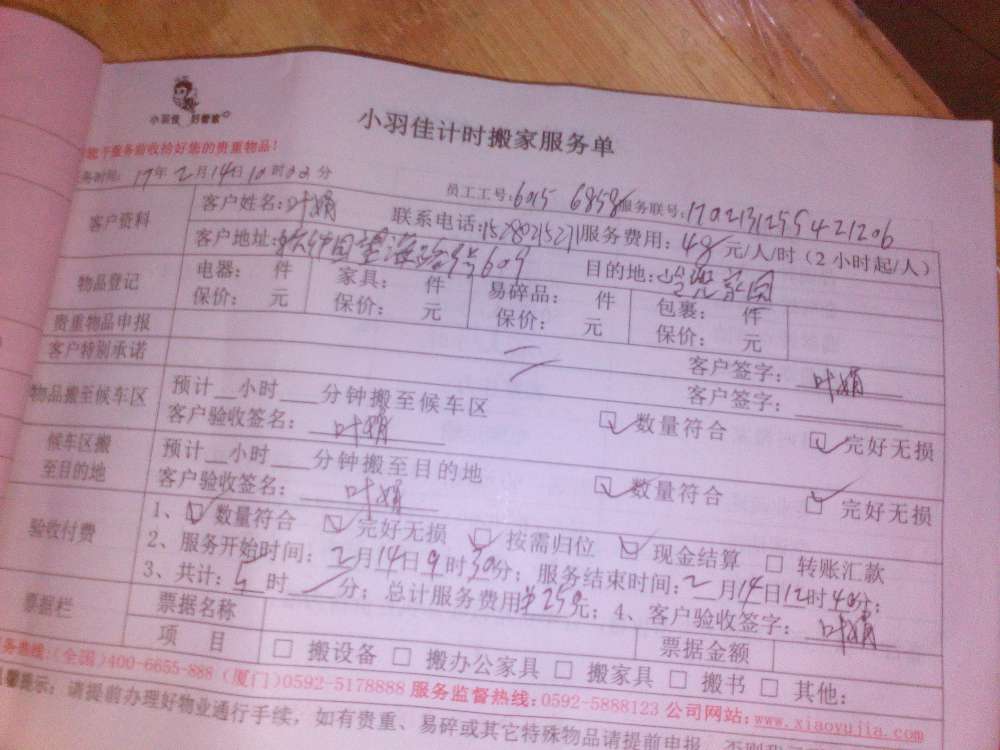 小羽佳 好管家
小羽佳计时搬家服务单
服务前收拾好您的贵重物品！
务时间：17年2月14日10时02分
员工工号：6015 6858 服务联号：1702131255421206
客户资料
客户姓名：叶娟 联系电话：15280215271 服务费用：48元/人/时（2小时起/人）
客户地址： 609 目的地：
物品登记
电器： 件 家具： 件 易碎品： 件 包裹： 件
保价： 元 保价： 元 保价： 元 保价： 元
贵重物品申报 客户签字：叶娟
客户特别承诺 客户签字：
物品搬至候车区
预计 小时 分钟搬至候车区
客户验收签名：叶娟 数量符合 完好无损
候车区搬至目的地
预计 小时 分钟搬至目的地
客户验收签名：叶娟 数量符合 完好无损
验收付费
1、数量符合 完好无损 按需归位 现金结算 转账汇款
2、服务开始时间：2月14日9时30分；服务结束时间：2月14日12时40分；
3、共计：5时 分；总计服务费用¥250元；4、客户验收签字：叶娟
票据栏
票据名称 票据金额
项 目 搬设备 搬办公家具 搬家具 搬书 其他：
务热线：（全国）400-6655-888（厦门）0592-5178888 服务监督热线：0592-5888123 公司网站：www.xiaoyujia.com
提示：请提前办理好物业通行手续，如有贵重、易碎或其它特殊物品请提前申报，否则